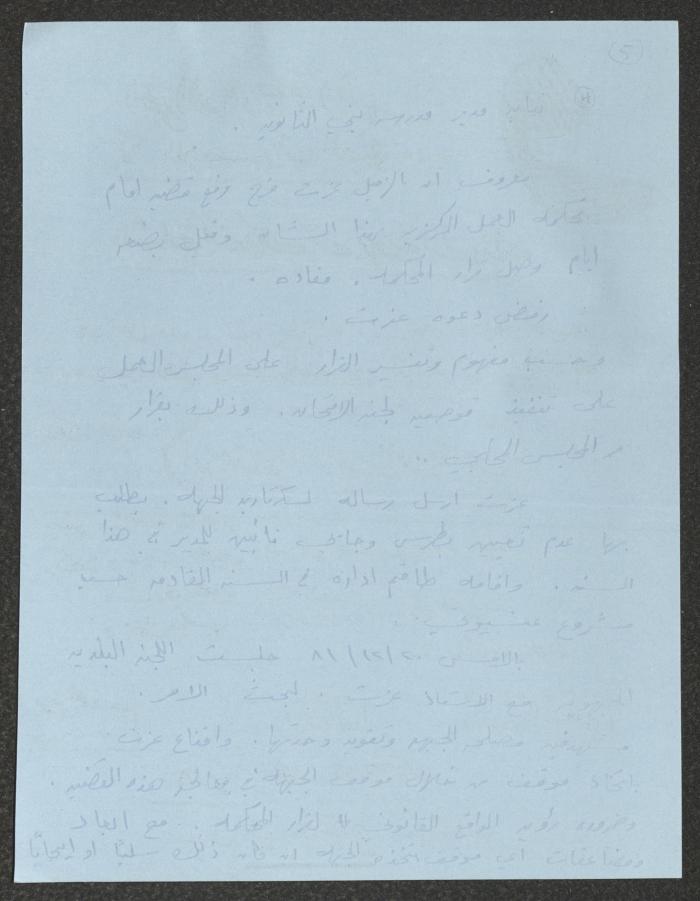 (5)
# نيابة مدير مدرسة يني الثانوية .
معروف ان الزميل عزت فرح رفع قضية امام
محكمة العمل المركزية بهذا الشأن وقبل بضعة
ايام وصل قرار المحكمة . مفاده .
رفض دعوه عزت .
وحسب مفهوم وتفسير القرار على المجلس العمل
على تنفيذ توصية لجنة الامتحان . وذلك بقرار
من المجلس المحلي ..
عزت ارسل رسالة لسكرتارية الجبهة . يطلب
بها عدم تعيين بطرس وجاني نائبين للمدير في هذا
السنة . واقامة طاقم ادارة في السنة القادمة حسب
مشروع
بالامس ٨١/١٢/٢٠ جلست اللجنة البلدية
الجبهوية مع الاستاذ عزت . لبحث الامر .
مستهدفين مصلحة الجبهة وتقوية وحدتها . واقناع عزت
باتخاذ موقف من خلال موقف الجبهة في معالجة هذه القضية .
وضرورة رؤية الواقع القانوني لقرار المحكمة . مع ابعاد
ومضاعفات اي موقف تتخذه الجبهة ان كان ذلك سلبًا او ايجابًا